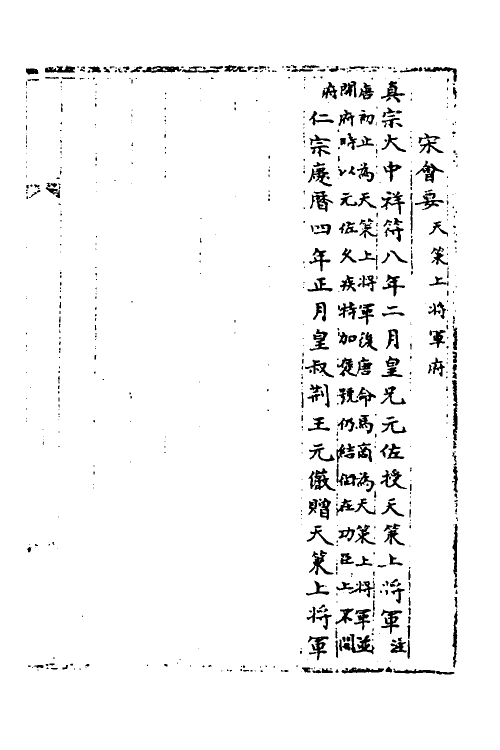 宋會要天策上将軍府
真宗大中祥符八年二月皇兄元佐授天策上将軍注
唐初止為天策上将軍後唐命馬商為天策上将軍並
開府時以元佐久疾特加褒號仍結㘅在功臣上不開
府
仁宗慶曆四年正月皇叔荆王元儼贈天策上将軍